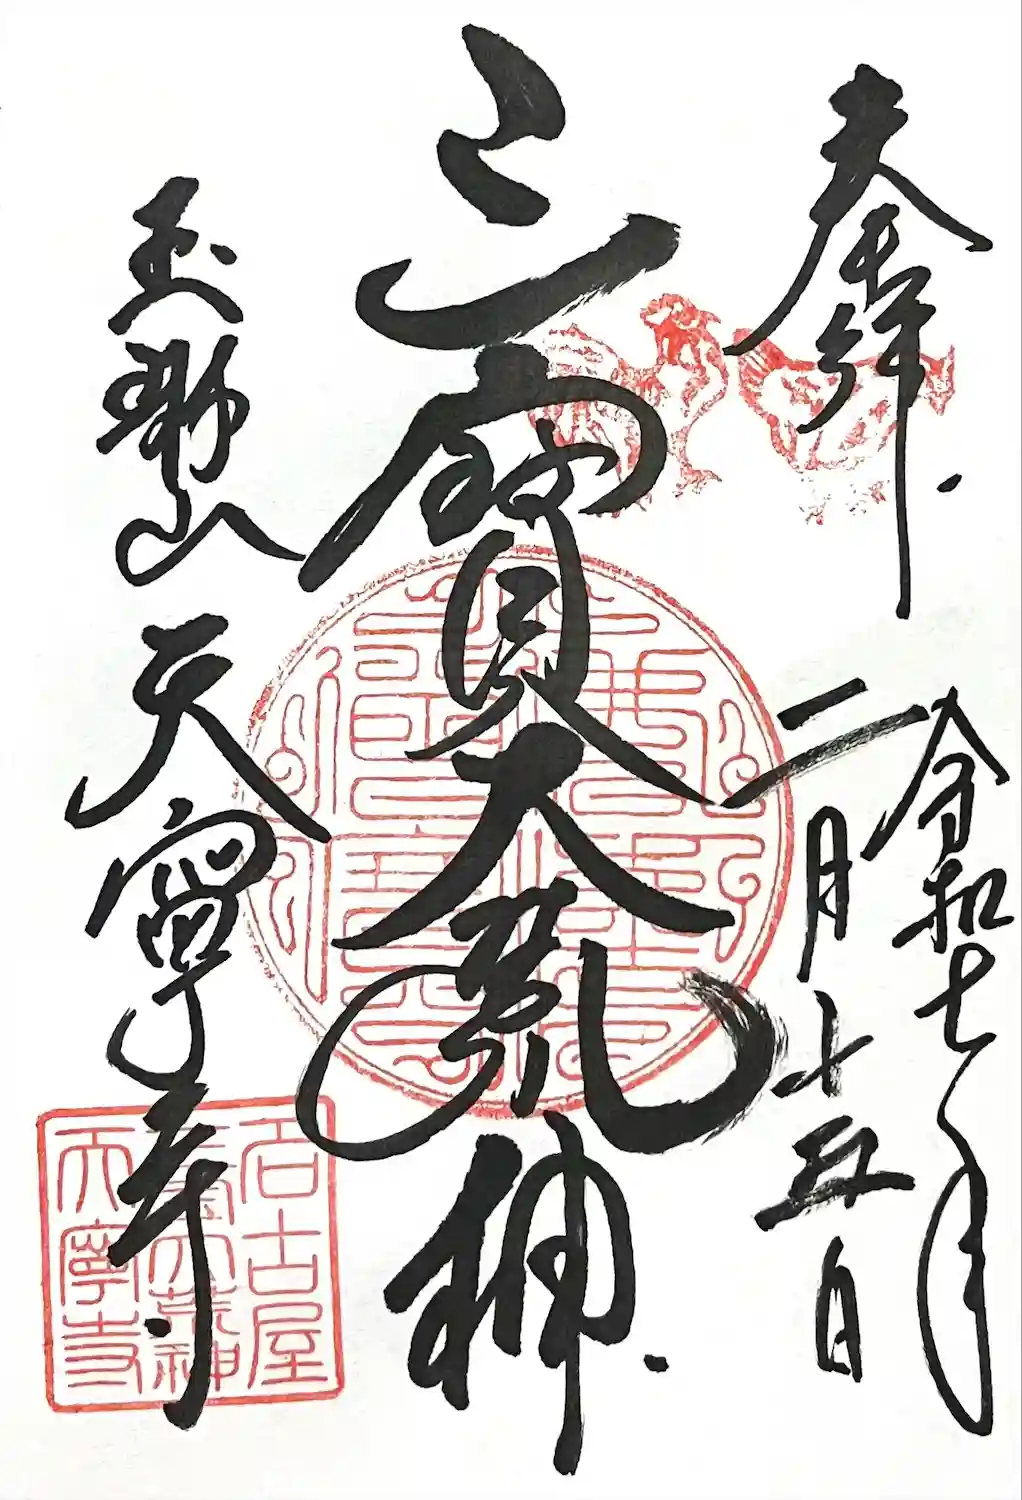 奉拝
令和七年
二月十五日
三寶大荒神
山天寧寺
名古屋
三寶大荒神
天寧寺